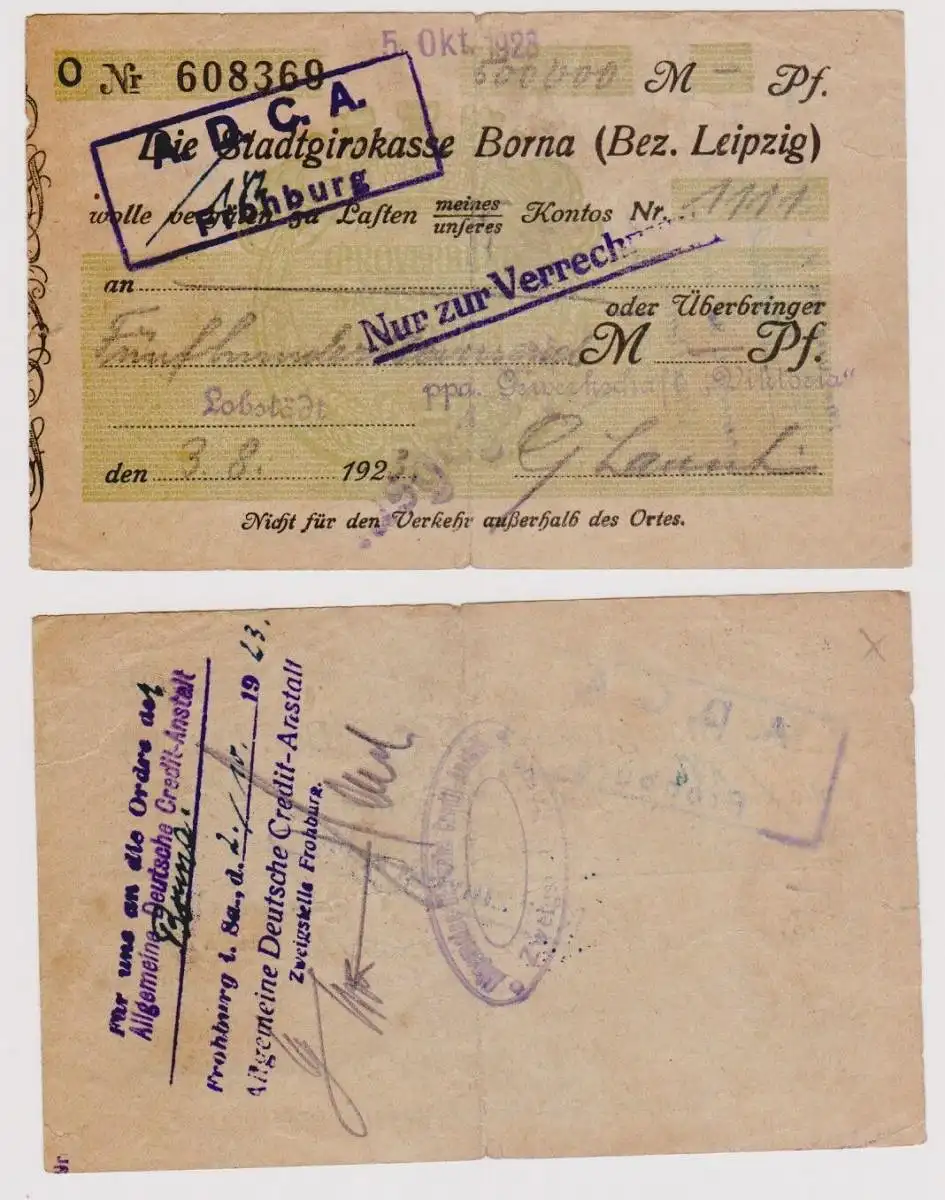 5. Okt. 1923
O Nr 608369 500000 M — Pf.
A. D. C. A.
Frohburg
Die Stadtgirokasse Borna (Bez. Leipzig)
wolle vergüten zu Lasten meines/unseres Kontos Nr. 1111
an
oder Überbringer
Nur zur Verrechnung
Fünfhunderttausend M — Pf.
Lobstädt ppa. Gewerkschaft „Viktoria“
den 3. 8. 1923
Nicht für den Verkehr außerhalb des Ortes.
Für uns an die Ordre der
Allgemeine Deutsche Credit-Anstalt
Borna.
Frohburg i. Sa., d. 2./10. 1923.
Allgemeine Deutsche Credit-Anstalt
Zweigstelle Frohburg.